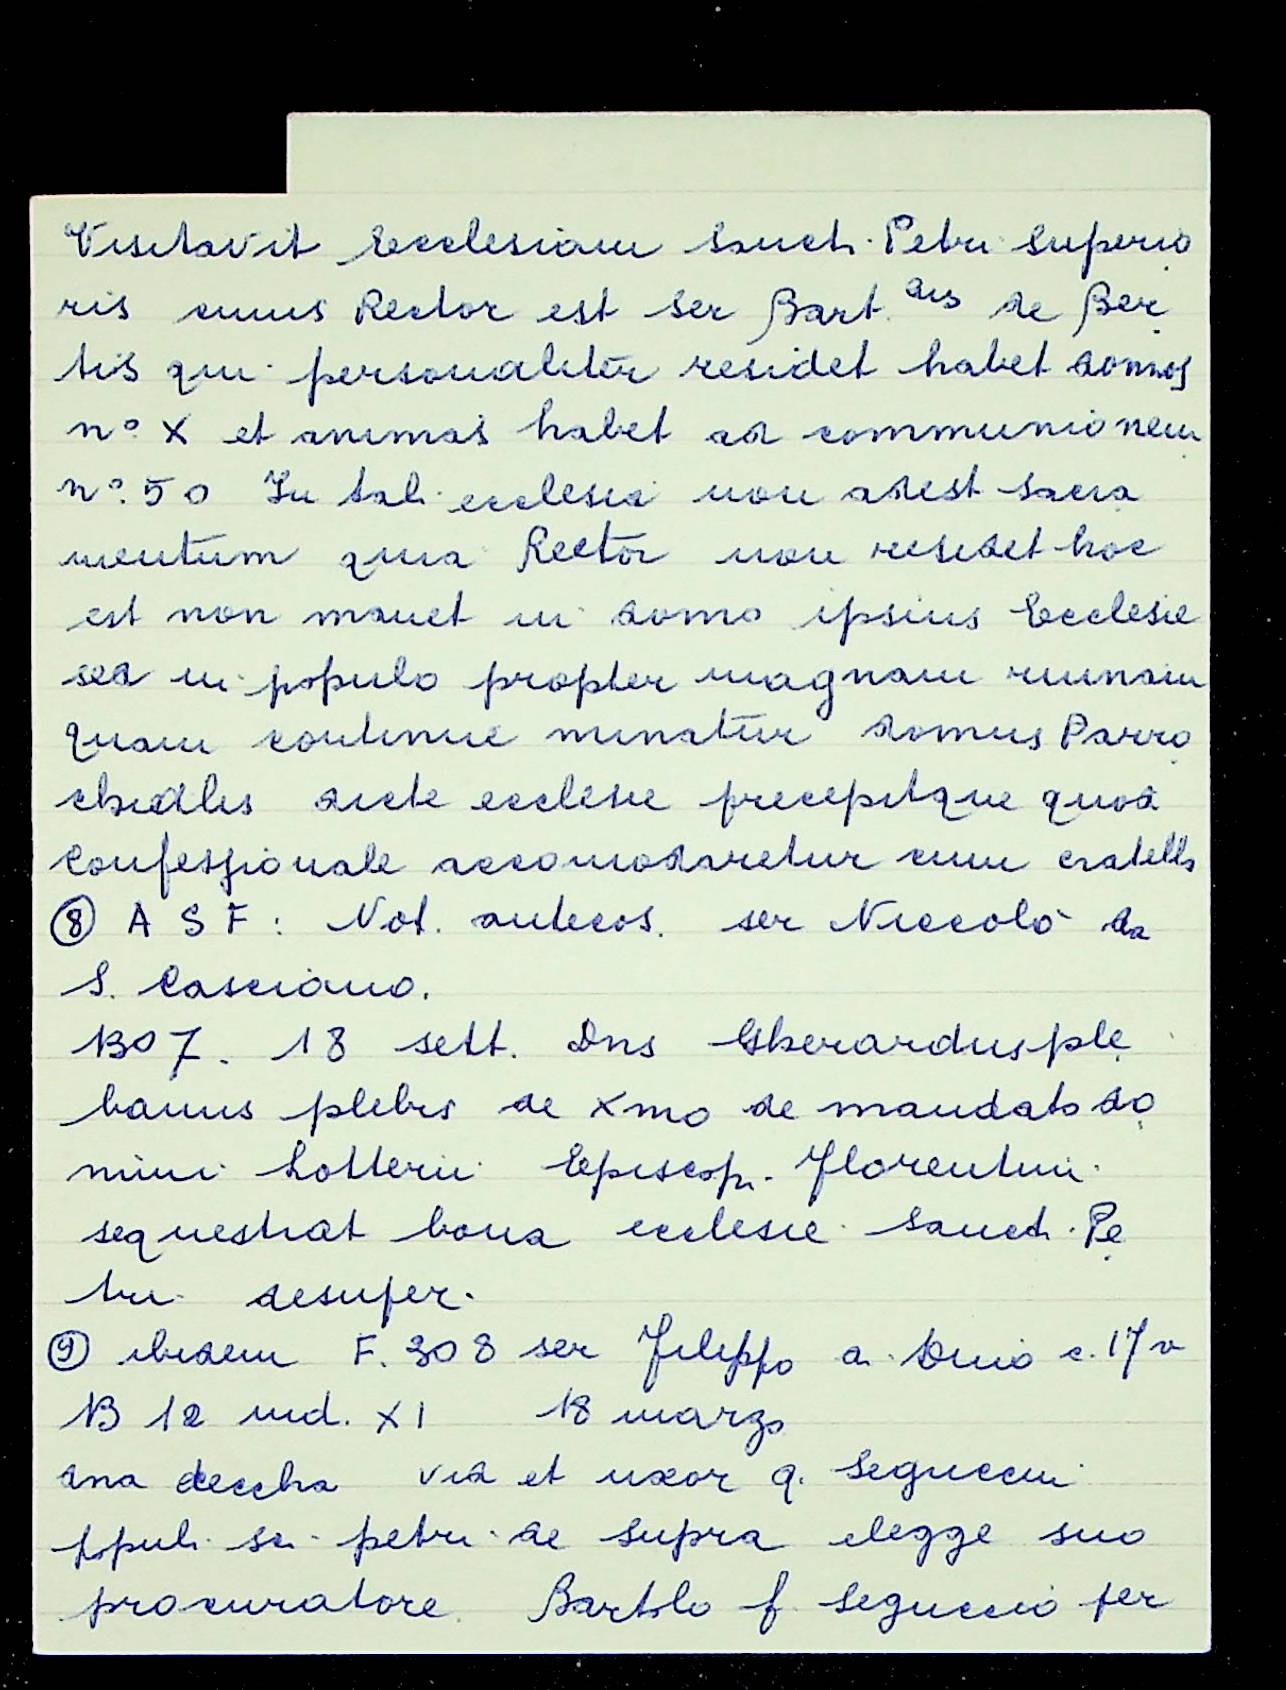 Visitavit Ecclesiam Sancti Petri Superio
ris cuius Rector est ser Bart.eus de Ber
tis qui personaliter residet habet domos
n° X et animas habet ad communionem
n°. 50 In tali ecclesia non adest sacra
mentum quia Rector non residet hoc
est non manet in domo ipsius Ecclesie
sed in populo propter magnam ruinam
quam continue minatur domus Parro
chialis dicte ecclesie precepitque quod
Confessionale accomodaretur cum cratella
⑧ A S F : Not. antecos. ser Niccolò da
S. Casciano.
1307. 18 sett. Dns Gherardus ple
banus plebis de Xmo de mandato do
mini Lotterii Episcopi Florentini
sequestrat bona ecclesie Sancti Pe
tri desuper.
⑨ ibidem F. 308 ser Filippo a. c. 17 v
1312 ind. XI 18 marzo
dna deccha vid et uxor q. Seguccini
ppuli sci petri de supra elegge suo
procuratore Bartolo f. Seguccio per